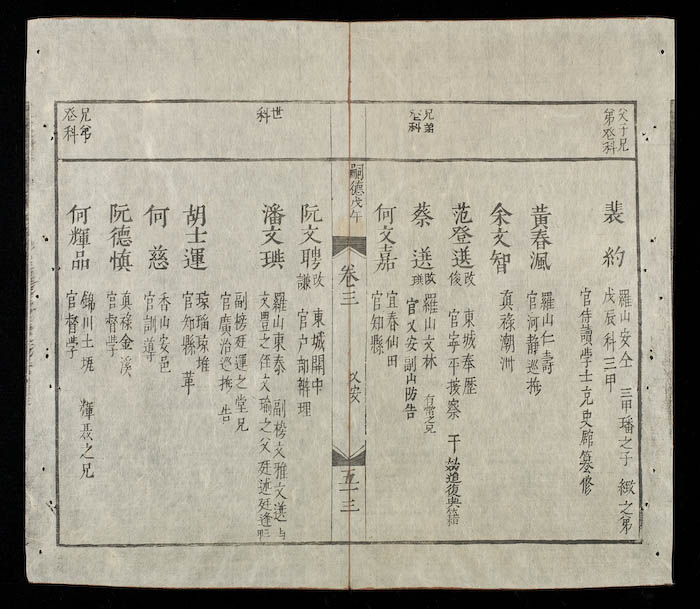 父子兄
弟登科
裴約
羅山安全 三甲璠之子 緻之弟
戊辰科三甲
官侍讀學士充史館纂修
黃春渢
羅山仁壽
官河靜巡撫
余文智
真祿潮洲
范登選 改俊
東城奉歷
官寧平按察 干効道復典籍
兄弟
登科
蔡選 改璵
羅山文林 有常之兄
官乂安副山防告
何文嘉
宜春仙田
官知縣
嗣德戊午
卷三
乂安
五十三
阮文聘 改謙
東城關中
官戶部辨理
世
科
潘文琪
羅山東泰 副榜文雅文選与
文豐之侄文瑜之父 廷述廷逢
副榜廷運之堂兄
官廣治巡撫 告
胡士運
瓊瑠瓊堆
官知縣 革
何慈
香山安邑
官訓導
阮德慎
真祿金溪
官督學
兄弟
登科
何輝品
錦川土塊 輝聂之兄
官督學